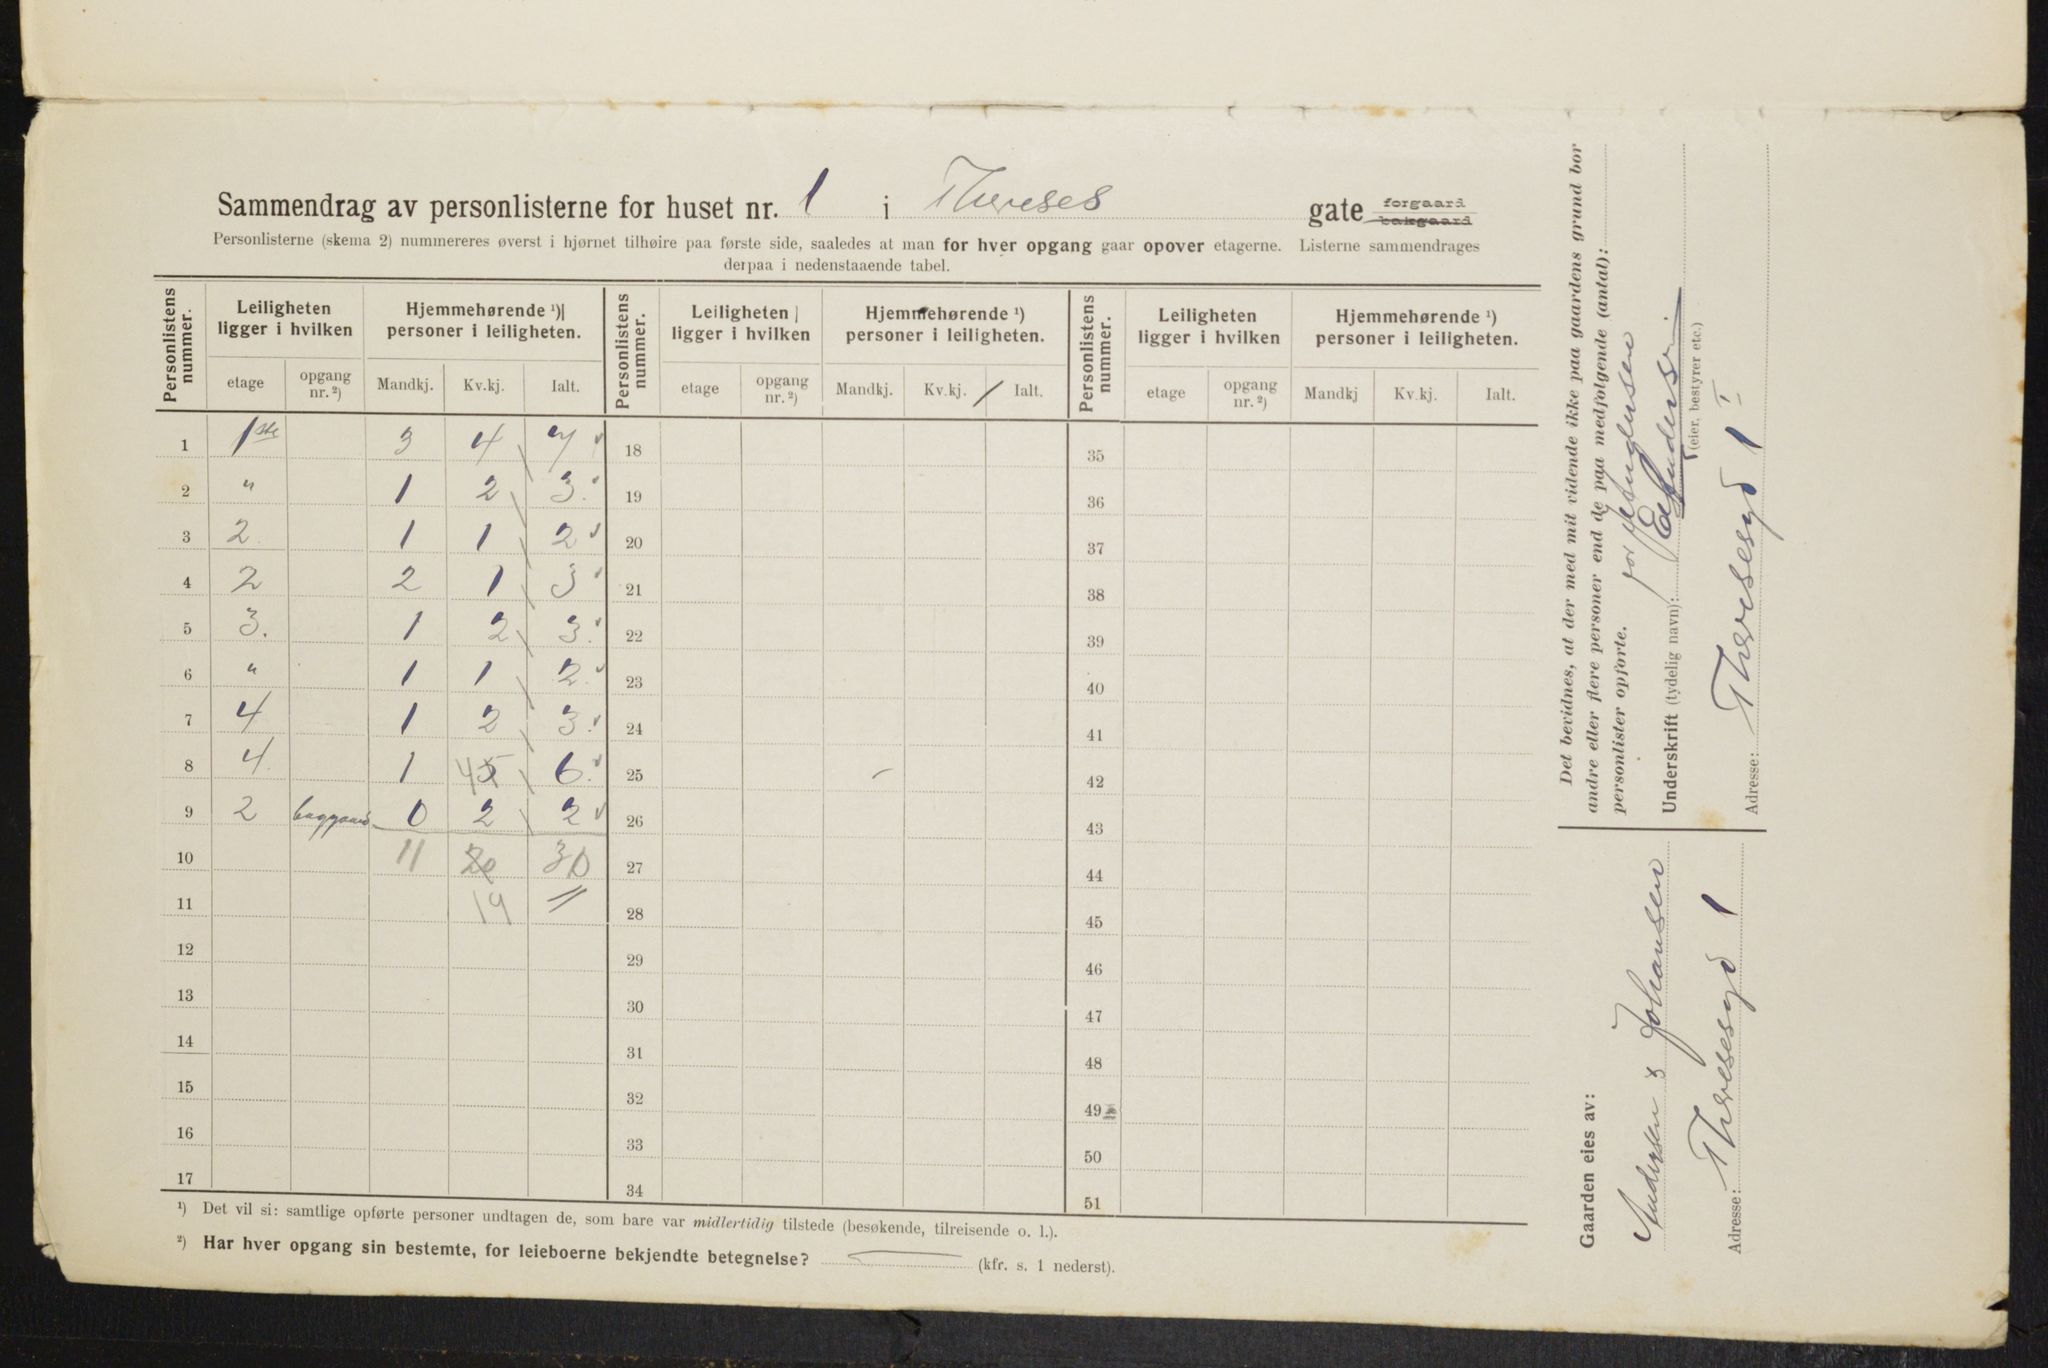 Sammendrag av personlisterne for huset nr. 1 i Thereses gate forgaard bakgaard
Personlisterne (skema 2) nummereres øverst i hjørnet tilhøire paa første side, saaledes at man for hver opgang gaar opover etagerne. Listerne sammendrages
derpaa i nedenstaaende tabel.
Personlistens nummer. Leiligheten ligger i hvilken Hjemmehørende ¹) personer i leiligheten. Personlistens nummer. Leiligheten ligger i hvilken Hjemmehørende ¹) personer i leiligheten. Personlistens nummer. Leiligheten ligger i hvilken Hjemmehørende ¹) personer i leiligheten.
etage opgang nr. ²) Mandkj. Kv.kj. Ialt. etage opgang nr. ²) Mandkj. Kv.kj. Ialt. etage opgang nr. ²) Mandkj Kv.kj. Ialt.
1 1ste 3 4 7 18 35
2 " 1 2 3. 19 36
3 2. 1 1 2 20 37
4 2 2 1 3 21 38
5 3. 1 2 3. 22 39
6 " 1 1 2. 23 40
7 4 1 2 3. 24 41
8 4. 1 45 6. 25 42
9 2 baggaard 0 2 2 26 43
10 11 20 30 27 44
11 19 28 45
12 29 46
13 30 47
14 31 48
15 32 49
16 33 50
17 34 51
¹) Det vil si: samtlige opførte personer undtagen de, som bare var midlertidig tilstede (besøkende, tilreisende o. l.).
²) Har hver opgang sin bestemte, for leieboerne bekjendte betegnelse? (kfr. s. 1 nederst).
Det bevidnes, at der med mit vidende ikke paa gaardens grund bor
andre eller flere personer end de paa medfølgende (antal):
personlister opførte. for
Underskrift (tydelig navn):
(eier, bestyrer etc.)
Adresse: Theresesgd 1 I
Gaarden eies av:
Andersen & Johansen
Adresse: Theresesgd 1